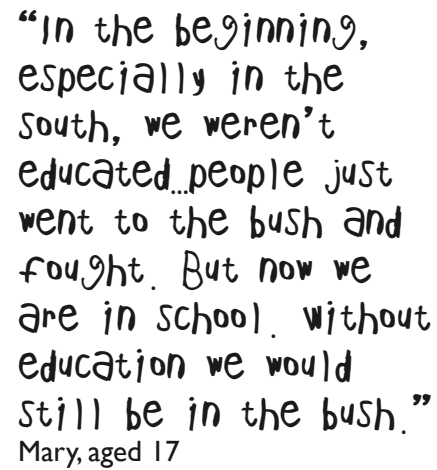 “In the beginning,
especially in the
south, we weren’t
educated...people just
went to the bush and
fought. But now we
are in school. Without
education we would
still be in the bush.”
Mary, aged 17